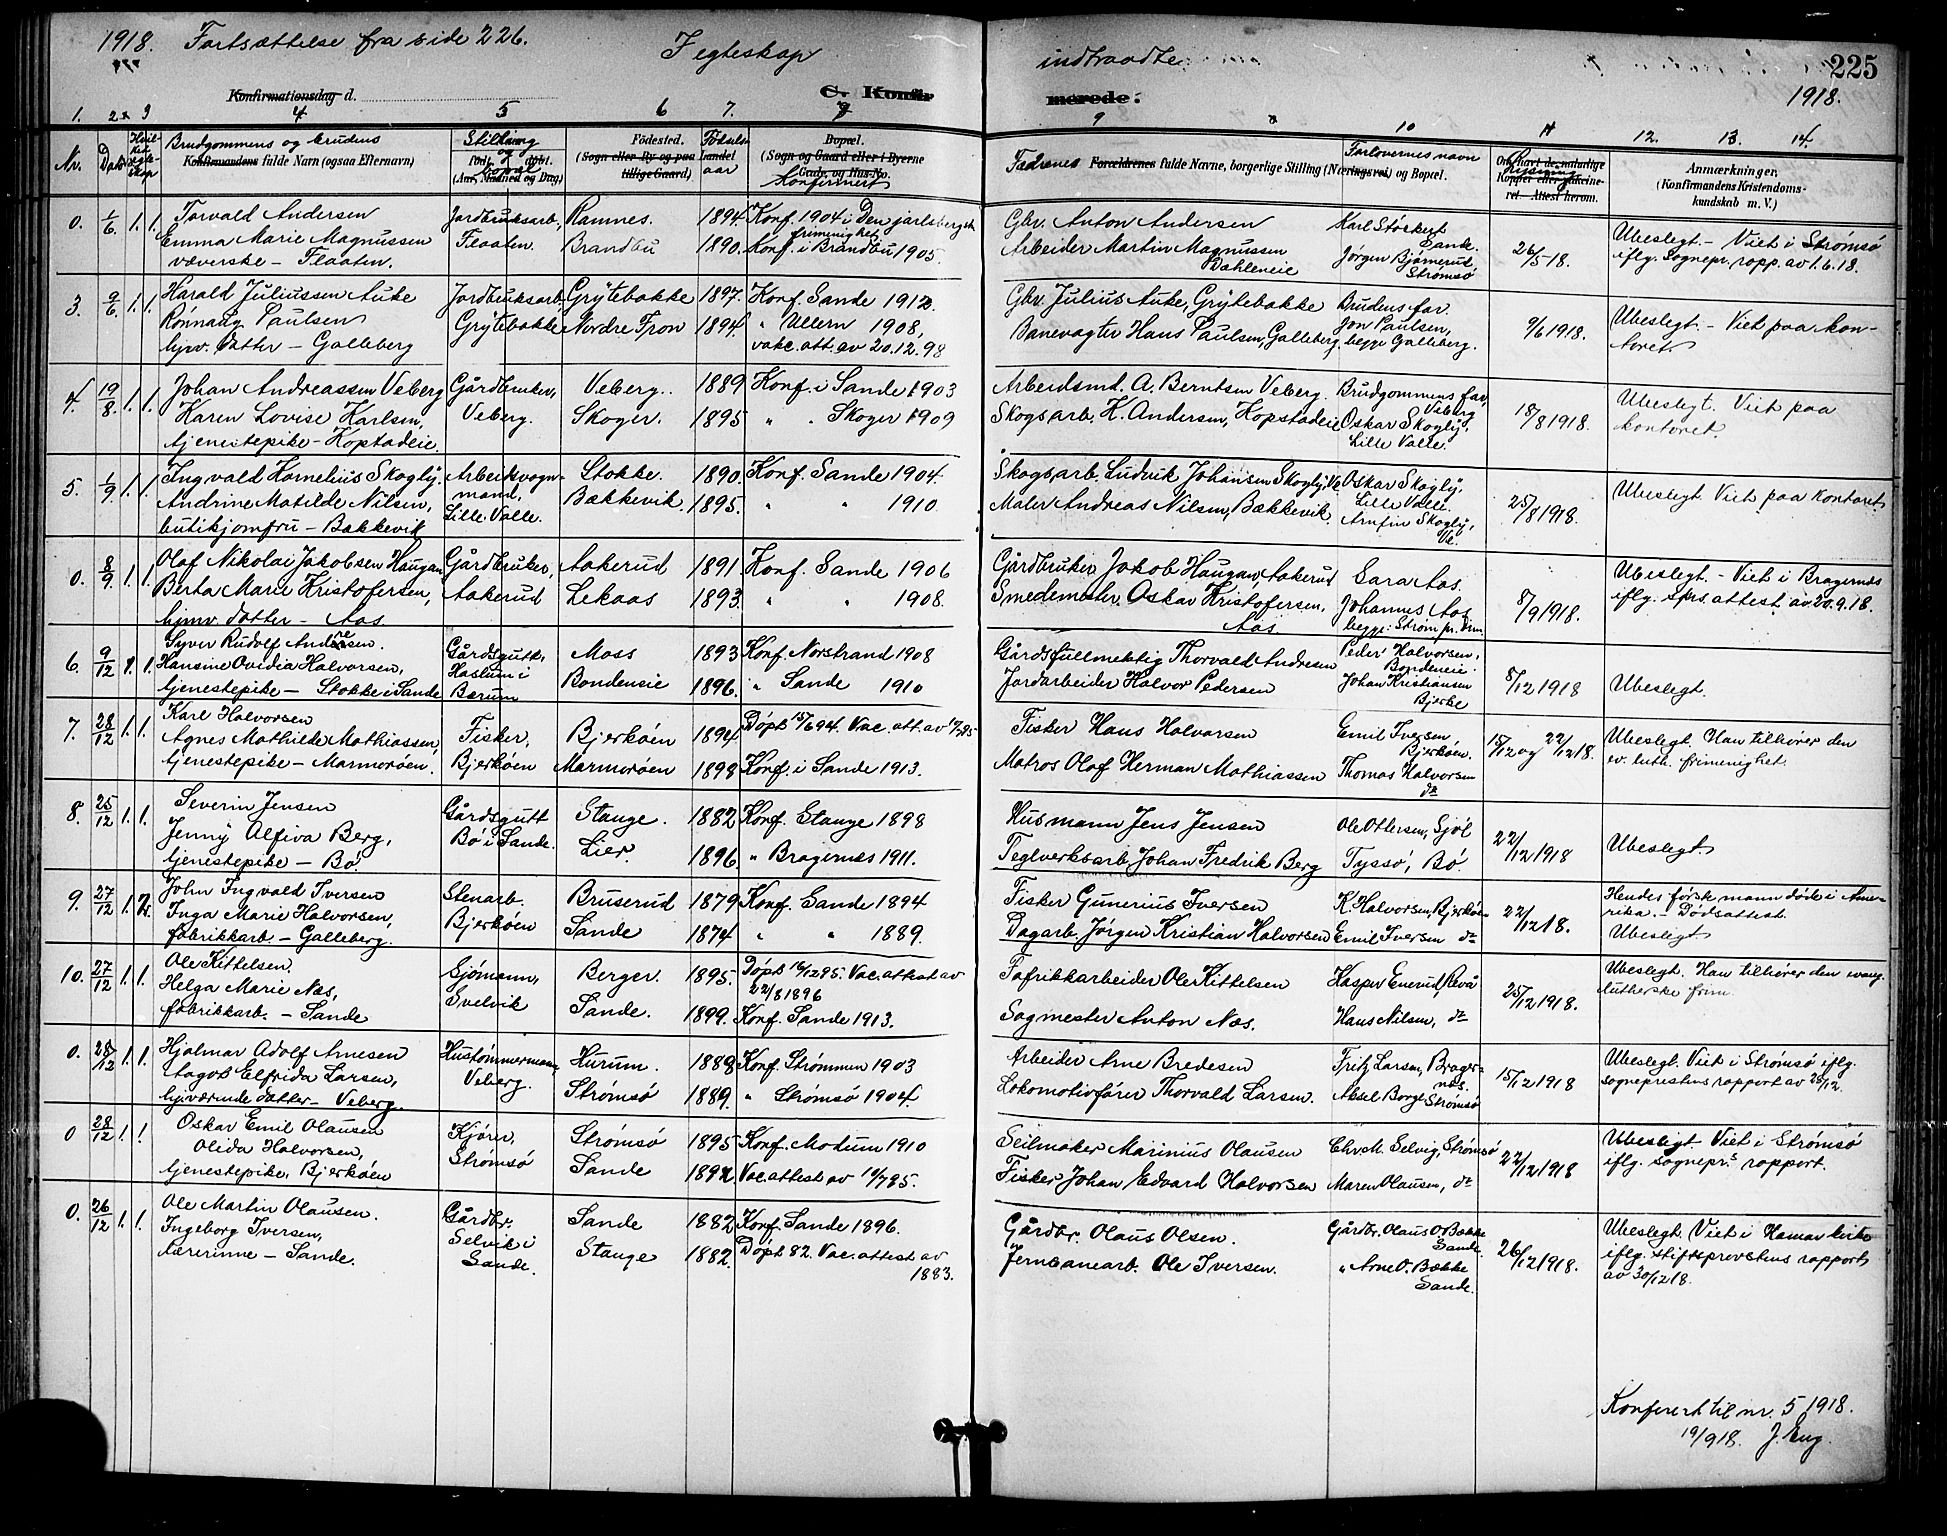 1918. Fortsættelse fra side 226.
I egteskap indtraadte
225
1918.
Konfirmationsdag d.
C. Konfirmerede.
1. 2. 3 4 5 6 7. 9 10 11 12. 13. 14
Nr. Dato Brudgommens og brudens
Konfirmandens fulde Navn (ogsaa Efternavn)
Stilling og bopæl
Födested.
(Sogn eller By og paa Landet tillige Gaard)
Födselsaar
Bopæl.
(Sogn og Gaard eller i Byerne Gade og Hus-No.
Konfirmert
Fædrenes Forældrenes fulde Navne, borgerlige Stilling (Næringsvei) og Bopæl.
Forlovernes navn
Lysning
Anmærkninger,
(Konfirmandens Kristendomskundskab m. V.)
0. 1/6 1. 1. Torvald Andersen Jordbruksarb., Ramnes. 1894. Konf. 1904 i Den jarlsbergske frimenighet Gbr. Anton Andersen Karl Stockert Sande.
Emma Marie Magnussen Flaaten. Brandbu 1890. Konf. i Brandbu 1905. Arbeider Martin Magnussen Dæhleneie Jørgen Bjømerud Strømsø 26/5-18.
væverske – Flaaten.
Ubeslegt. – Viet i Strømsø
iflg. Sognepr. rapp. av 1.6.18.
3. 9/6 1. 1. Harald Juliussen Auke Jordbruksarb. Grytebakke 1897. Konf. Sande 1912. Gbr. Julius Auke, Grytebakke Brudens far.
Rønnaug Paulsen Grytebakke Nordre Fron 1894. " Ullern 1908, Banevagter Hans Paulsen, Galleberg. Jon Paulsen, begge Galleberg. 9/6 1918.
hjv. datter – Galleberg vakc. att. av 20.12.98
Ubeslegt. – Viet paa kontoret.
4. 19/8. 1. 1. Johan Andreassen Veberg Gårdbruker, Veberg. 1889 Konf. i Sande 1903 Arbeidsmd. A. Berntsen Veberg. Brudgommens far, Veberg
Karen Lovise Karlsen, Veberg. Skoger. 1895 " " Skoger 1909 Skogsarb. H. Andersen, Hopstadeie Oskar Skogly, Lille Valle. 18/8 1918.
tjenestepike – Hopstadeie.
Ubeslegt. Viet paa
kontoret.
5. 1/9. 1. 1. Ingvald Kornelius Skogly. Arbeidsvognmand, Stokke. 1890. Konf. Sande 1904. Skogsarb. Ludvik Johansen Skogly, Ve Oskar Skogly, Lille Valle.
Andrine Matilde Nilsen, Lille Valle. Bækkevik. 1895. " " 1910. Maler Andreas Nilsen, Bækkevik. Arnfin Skogly, Ve. 25/8 1918.
butikjomfru – Bækkevik
Ubeslegt. Viet paa kontoret.
0. 8/9. 1. 1. Olaf Nikolai Jakobsen Haugan Gårdbruker, Aakerud 1891 Konf. Sande 1906 Gårdbruker Jakob Haugan, Aakerud Sara Aas.
Berta Marie Kristofersen, Aakerud Lekaas 1893. " " 1908. Smedemester Oskar Kristofersen, Aas. Johannes Aas begge: Strøm pr. Drm. 8/9 1918.
hjmv. datter – Aas.
Ubeslegt. – Viet i Bragernes
iflg. sprs. attest av 20.9.18.
6. 9/12 1. 1. Syver Rudolf Andresen. Gårdsgutt, Moss 1893 Konf. Norstrand 1908 Gårdsfullmektig Thorvald Andresen Peder Halvorsen, Bondeneie.
Hansine Ovidia Halvorsen, Haslum i Bærum Bondeneie 1896. " Sande 1910 Jordarbeider Halvor Pedersen Johan Kristiansen Bjerke 8/12 1918
tjenestepike – Stokke i Sande
Ubeslegt.
7. 28/12 1. 1. Karl Halvorsen Fisker, Bjerkøen 1894 Døpt 15/6 94. Vac. att. av 17/7 95 Fisker Hans Halvorsen Emil Iversen Bjerkøen.
Agnes Mathilde Mathiassen, Bjerkøen Marmorøen 1898 Konf. i Sande 1913. Matros Olaf Herman Mathiassen Thomas Halvorsen do 15/12 og 22/12 18.
tjenestepike – Marmorøen.
Ubeslegt. Han tilhører den
ev. luth. frimenighet.
8. 25/12 1. 1. Severin Jensen Gårdsgutt Stange. 1882 Konf. Stange 1898 Husmann Jens Jensen Ole Ottersen, Sjøl
Jenny Alfiva Berg, Bø i Sande. Lier. 1896. " Bragernes 1911. Teglverksarb. Johan Fredrik Berg Tyssø, Bø. 22/12 1918
tjenestepike – Bø.
Ubeslegt.
9. 27/12 1. 2. John Ingvald Iversen Stenarb. Bruserud 1879 Konf. Sande 1894 Fisker Gunerius Iversen K. Halvorsen, Bjerkøen
Inga Marie Halvorsen, Bjerkøen Sande 1874 " " 1889. Dagarb. Jørgen Kristian Halvorsen Emil Iversen do 22/12 18.
fabrikkarb. – Galleberg.
Hendes første mann døde i Amerika. – Dødsattest.
Ubeslegt.
10. 27/12 1. 1. Ole Kittelsen. Sjømann, Berger. 1895. Døpt 16/12 95. Vac. attest av 22/8 1896 Fafrikkarbeider Ole Kittelsen Kasper Enerud, Revå
Helga Marie Næs, Svelvik Sande. 1899. Konf. Sande 1913. Sagmester Anton Næs. Hans Nilsen, do 25/12 1918.
fabrikkarb. – Sande
Ubeslegt. Han tilhører den evang.
lutherske frim.
0. 28/12 1. 1. Hjalmar Adolf Arnesen Hustømmermann, Hurum. 1888 Konf. Strømmen 1903 Arbeider Arne Bredesen Fritz Larsen, Bragernes.
Dagot Elfrida Larsen, Veberg. Strømsø 1889. " Strømsø 1904. Lokomotivfører Thorvald Larsen. Aksel Borge Strømsø 15/12 1918
hjværende datter – Veberg.
Ubeslegt. Viet i Strømsø iflg.
sogneprestens rapport av 28/12.
0 28/12 1. 1. Oskar Emil Olausen Kjører, Strømsø 1895 Konf. Modum 1910 Seilmaker Marinius Olausen Chr. M. Selvig, Strømsø
Olida Halvorsen, Strømsø Sande 1894 Vac. attest av 19/7 95. Fisker Johan Edvard Halvorsen Maren Olausen, do 22/12 1918
tjenestepike, Bjerkøen
Ubeslegt. Viet i Strømsø
iflg. sognepr.s rapport.
0. 26/12 1. 1. Ole Martin Olausen. Gårdbr. Sande 1882 Konf. Sande 1896. Gårdbr. Olaus Olsen. Gårdbr. Olaus O. Bække Sande.
Ingeborg Iversen, Selvik i Sande. Stange 1882. Døpt 82. Vac. attest av 1883. Jernbanearb. Ole Iversen. " Arne O. Bække Sande. 26/12 1918.
Lærerinne – Sande.
Ubeslegt. Viet i Hamar kirke
iflg. stiftsprovstens rapport
av 30/12 18.
Konferert til nr. 5 1918.
19/9 18. J. Eng.